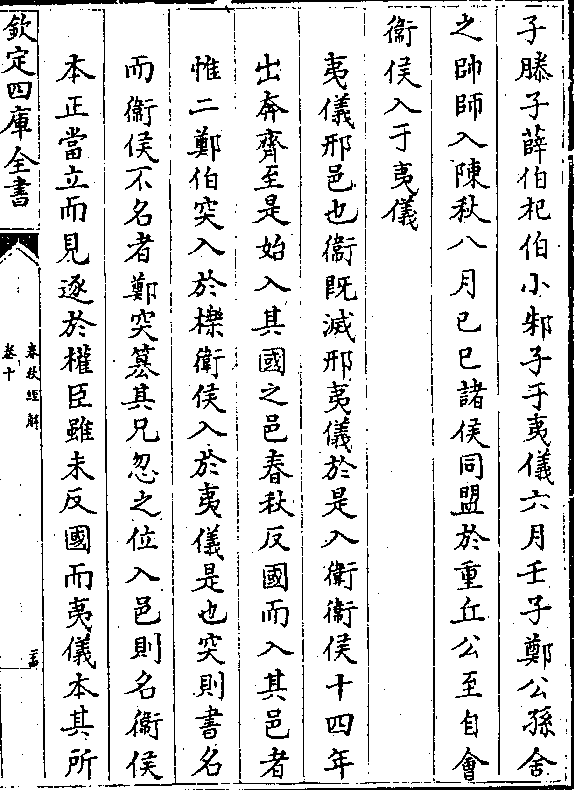 子滕子薛伯杞伯小邾子于夷儀六月壬子鄭公孫舍
之帥師入陳秋八月己巳諸侯同盟於重丘公至自會
衛侯入于夷儀
夷儀邢邑也衛既滅邢夷儀於是入衛衛侯十四年
出奔齊至是始入其國之邑春秋反國而入其邑者
惟二鄭伯突入於櫟衛侯入於夷儀是也突則書名
而衛侯不名者鄭突簒其兄忽之位入邑則名衛侯
本正當立而見逐於權臣雖未反國而夷儀本其所
欽定四庫全書
春秋經解
卷十